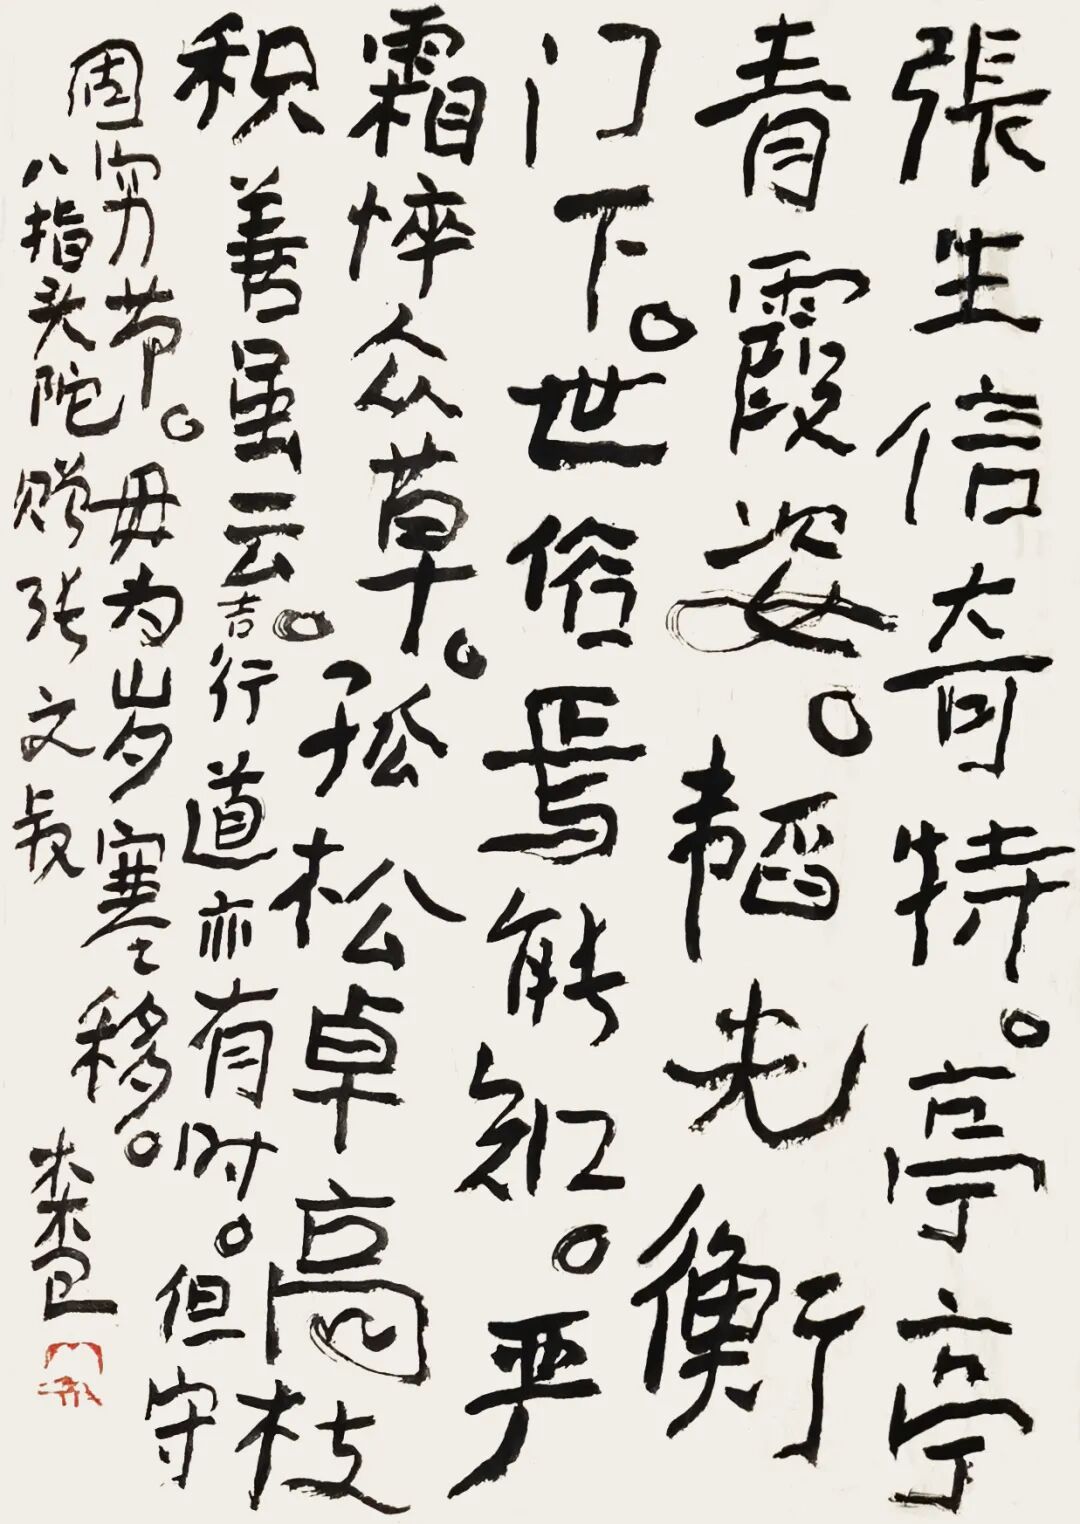 張生信奇特。亭亭
青霞姿。韬光衡
门下。世俗焉能知。严
霜悴众草。孤松卓高枝
积善虽云吉。行道亦有时。但守
固穷节。毋为岁寒移。
八指头陀赠张文叔